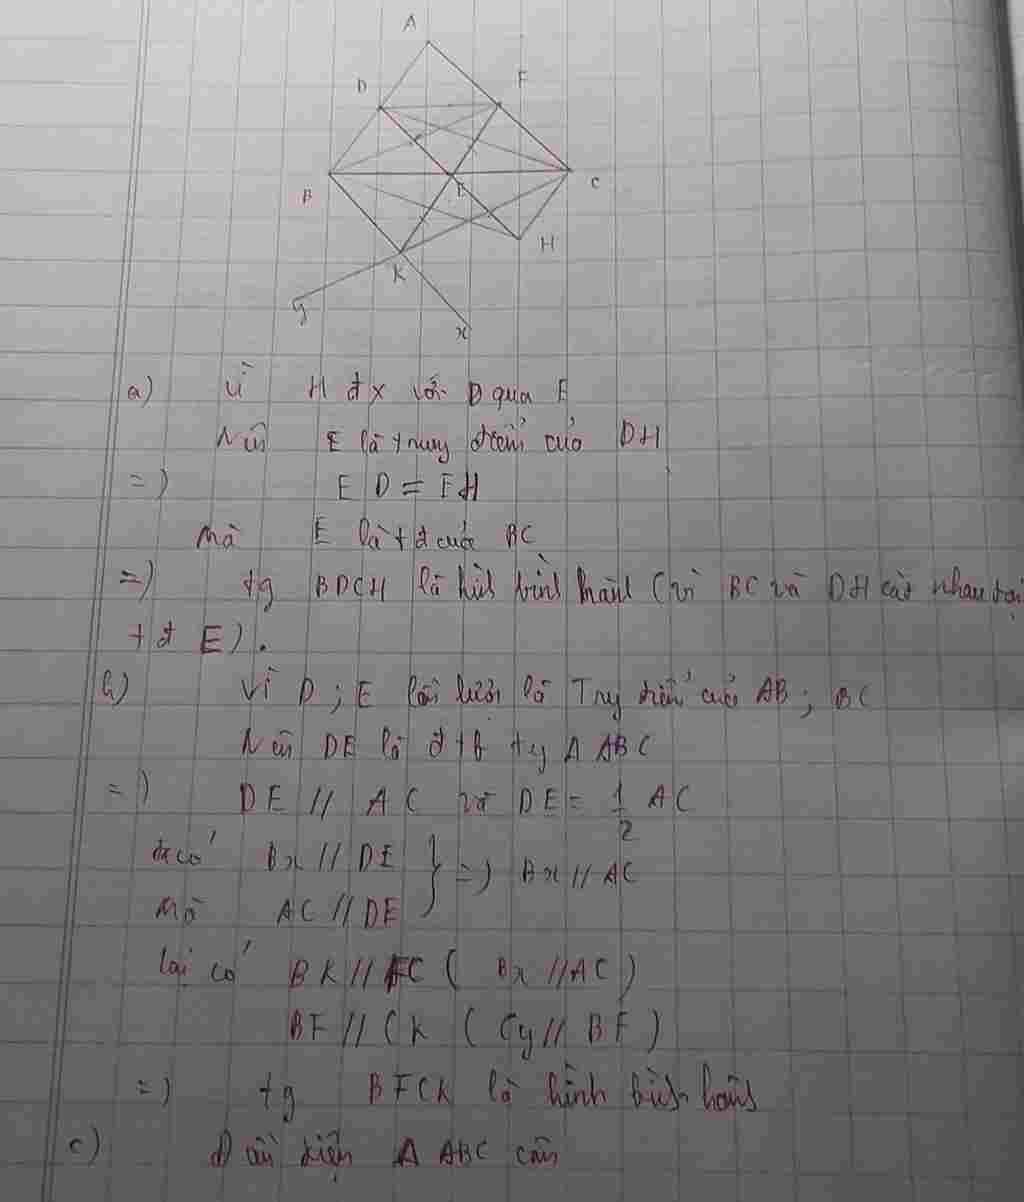 A
D
F
B
E
C
H
K
y
x
a) Vì H đx với D qua E
Nên E là trung điểm của DH
=) ED = EH
Mà E là tđ của BC
=) tg BDCH là hình bình hành (vì BC và DH cắt nhau tại
tđ E).
b) Vì D; E lần lượt là Trg điểm của AB; BC
Nên DE là đtb tg ABC
=) DE // AC và DE = 1/2 AC
ta có Bx // DE } =) Bx // AC
Mà AC // DE
lại có BK // FC ( Bx // AC )
BF // CK ( Cy // BF )
=) tg BFCK là hình bình hành
c) Điều kiện Δ ABC cân